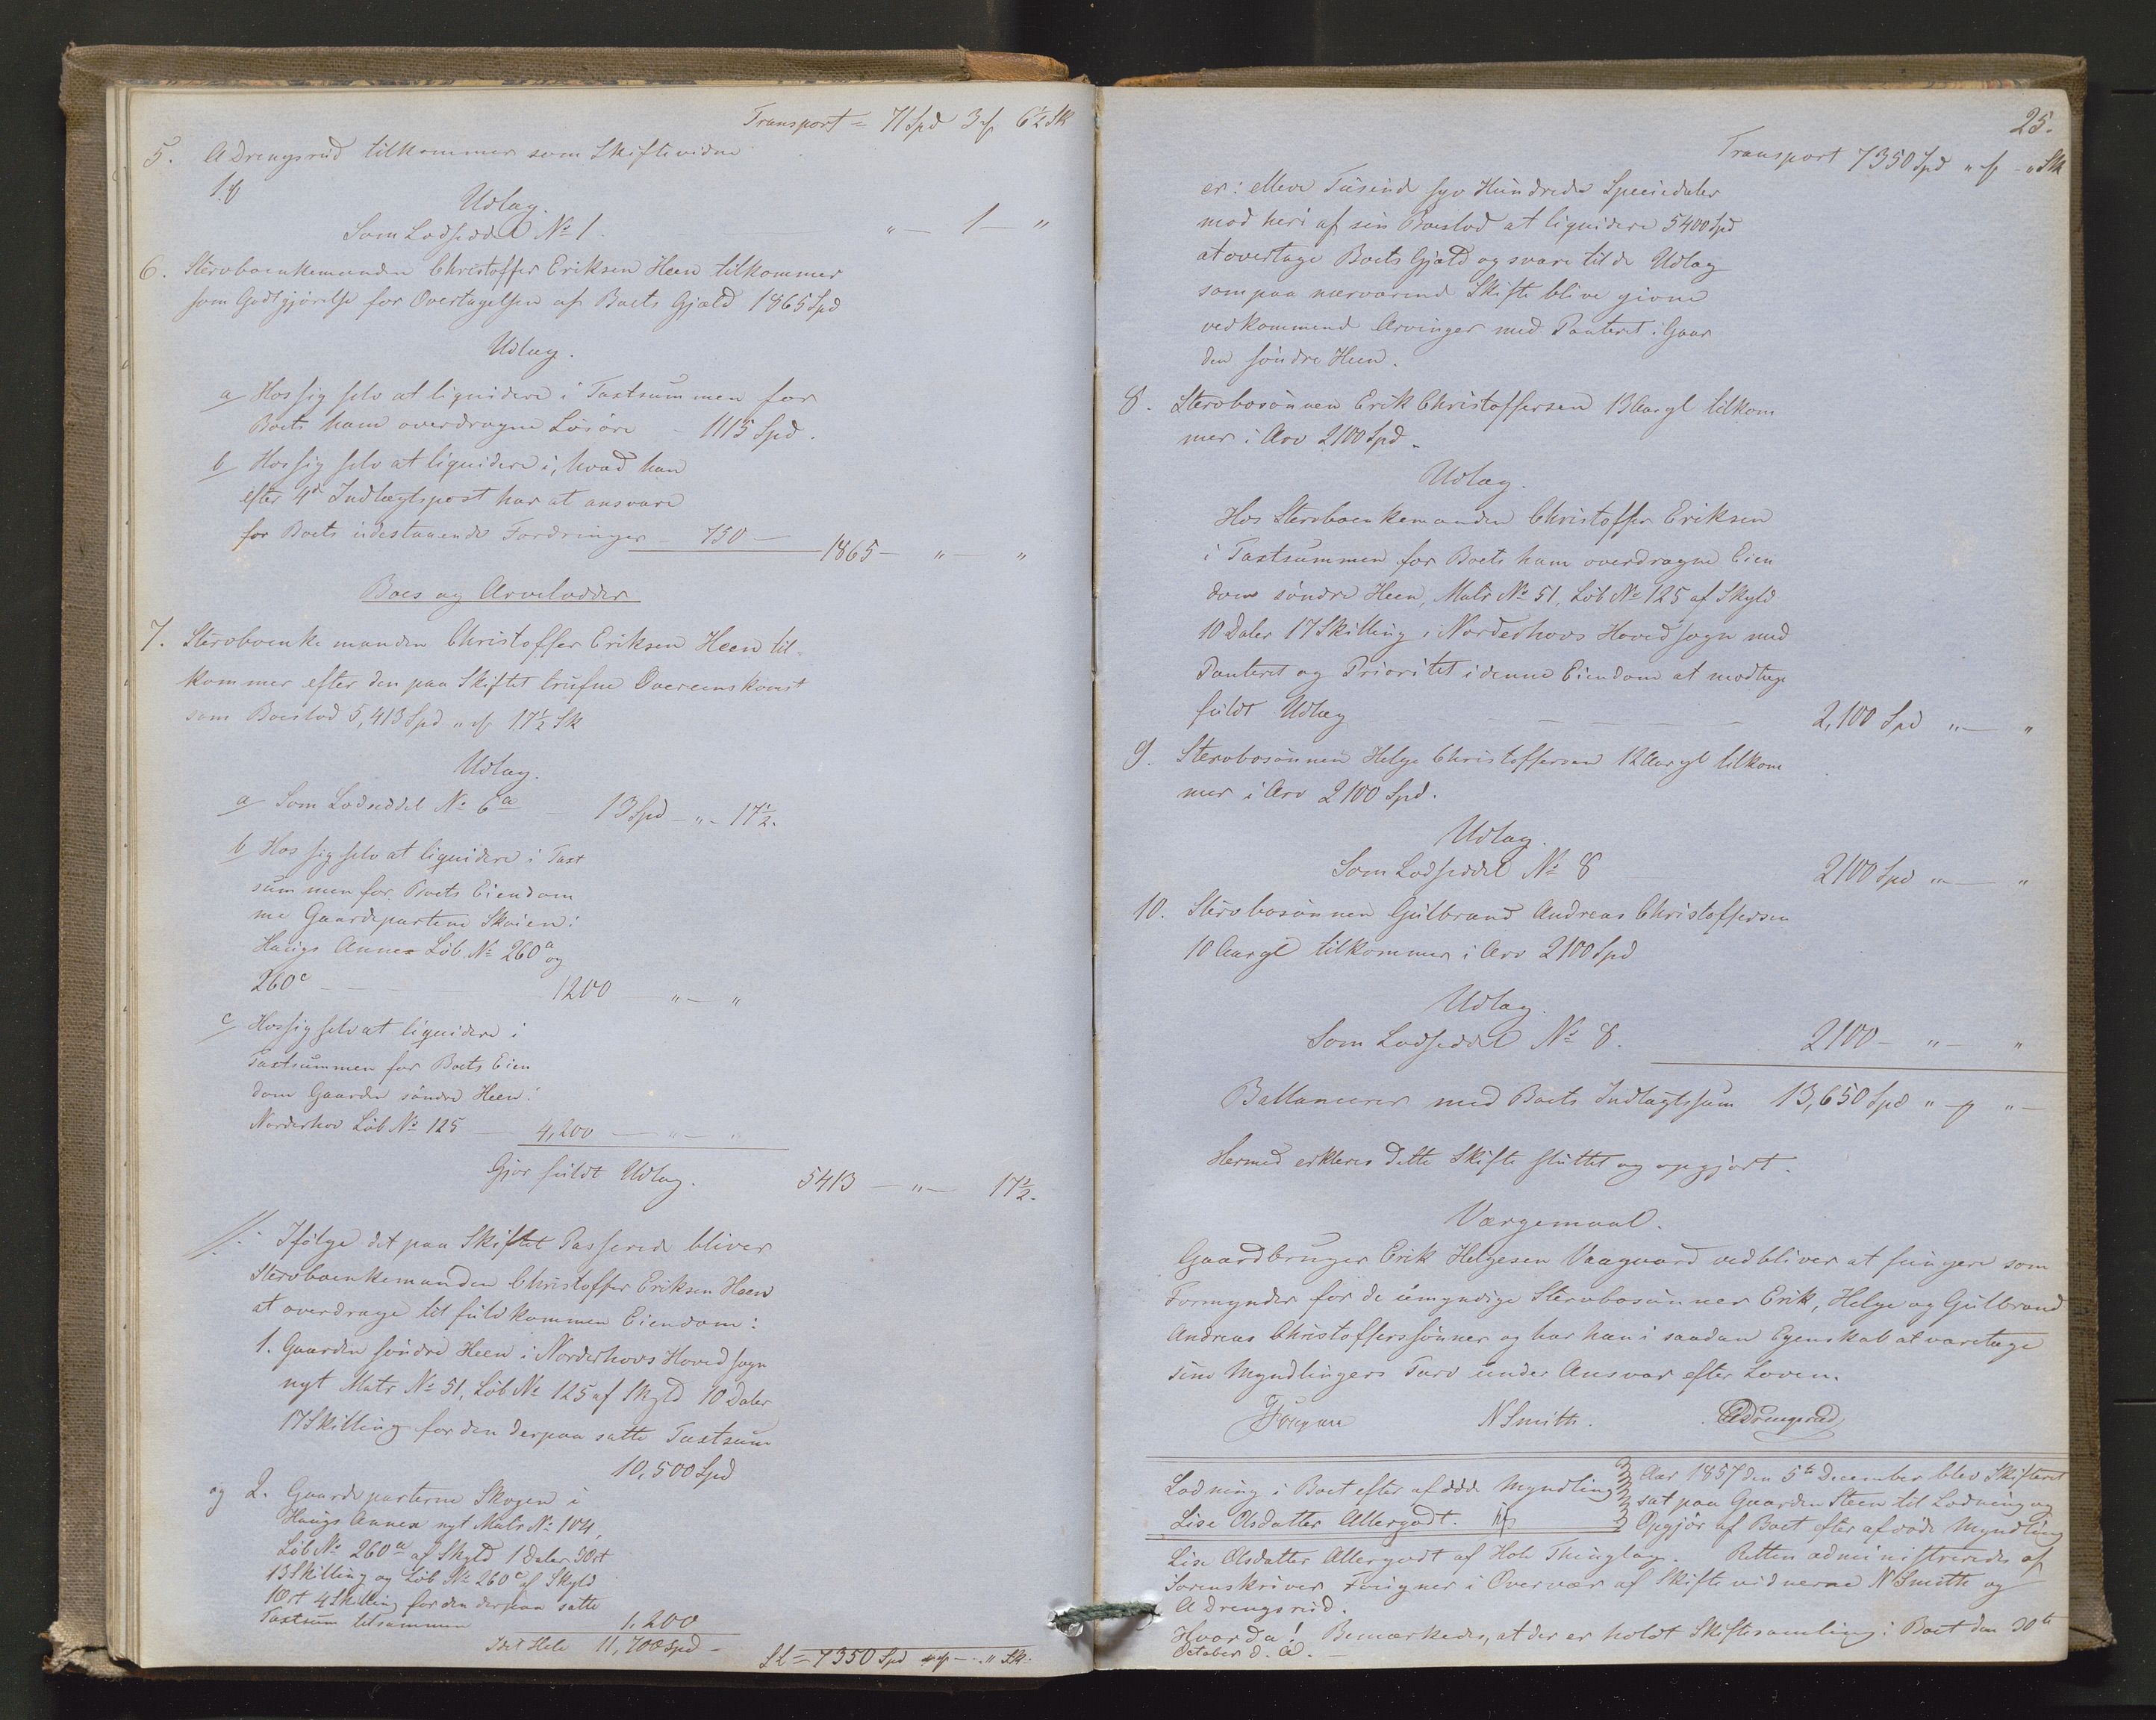 Transport = 71 Spd 3 ₰ 6½ Sk
5. A Drengsrud tilkommer som Skiftevidne
1 ₰
Udlæg.
Som Lodseddel No 1. " — 1 — "
6. Stervboenkemanden Christoffer Eriksen Heen tilkommer
som Godtgjörelse for Overtagelsen af Boets Gjæld 1865 Spd
Udlæg.
a Hos sig selv at liquidere i Taxtsummen for
Boets ham overdragne Lösöre - 1115 Spd.
b Hos sig selv at liquidere i, hvad han
efter 4de Indlægtspost har at ansvare
for Boets udestaaende Fordringer - 750 — 1865 — " — "
Boes og Arvelodder
7. Stervboenkemanden Christoffer Eriksen Heen til-
kommer efter den paa Skiftet trufne Overeenskomst
som Boeslod 5,413 Spd " ₰ 17½ Sk
Udlæg.
a Som Lodseddel No 6a - 13 Spd - " - 17½.
b Hos sig selv at liquidere i Taxt
summen for Boets Eiendom
me Gaardeparterne Skoien i
Haugs Annex Löb No 260a og
260c - - 1200 — " — "
c Hos sig selv at liquidere i
Taxtsummen for Boets Eien
dom Gaarden söndre Heen i
Norderhov Löb No 125 — 4,200 — " — "
Gjör fuldt Udlæg. 5413 — " — 17½.
//: Ifölge det paa Skiftet Passerede bliver
Stervboenkemanden Christoffer Eriksen Heen
at overdrage til fuldkommen Eiendom:
1. Gaarden söndre Heen i Norderhovs Hovedsogn
nyt Matr No 51, Löb No 125 af Skyld 10 Daler
17 Skilling for den derpaa satte Taxtsum
10,500 Spd
og 2. Gaardeparterne Skogen i
Haugs Annex nyt Matr No 104,
Löb No 260a af Skyld 1 Daler 3 Ort
13 Skilling og Löb No 260c af Skyld
1 Ort 4 Skilling for den derpaa satte
Taxtsum tilsammen 1,200
Idet Hele 11,700 Spd -
Lt = 7350 Spd " ₰ - " Sk.
25.
Transport 7350 Spd " ₰ - " Sk
er: elleve Tusinde syv Hundrede Speciedaler
mod heri af sin Boeslod at liquidere 5400 Spd
at overtage Boets Gjæld og svare til de Udlæg
som paa nærværende Skifte blive givne
vedkommende Arvinger med Panteret i Gaar
den söndre Heen.
8. Stervbosönnen Erik Christoffersen 13 Aar gl tilkom
mer i Arv 2100 Spd.
Udlæg.
Hos Stervboenkemanden Christoffer Eriksen
i Taxtsummen for Boets ham overdragne Eien
dom söndre Heen, Matr No 51, Löb No 125 af Skyld
10 Daler 17 Skilling i Norderhovs Hovedsogn med
Panteret og Prioritet i denne Eiendom at modtage
fuldt Udlæg — — — — — 2,100 Spd " — "
9. Stervbosönnen Helge Christoffersen 12 Aar gl tilkom
mer i Arv 2100 Spd.
Udlæg.
Som Lodseddel No 8 — 2100 Spd " — "
10. Stervbosönnen Gulbrand Andreas Christoffersen
10 Aar gl tilkommer i Arv 2100 Spd
Udlæg.
Som Lodseddel No 8. 2100 — " — "
Ballancerer med Boets Indlægtssum 13,650 Spd " ₰ " -
Hermed erklæres dette Skifte sluttet og opgjort.
Værgemaal.
Gaardbruger Erik Helgesen Vaagaard vedbliver at fungere som
Formynder for de umyndige Stervbosönner Erik, Helge og Gulbrand
Andreas Christofferssönner og har han i saadan Egenskab at varetage
sine Myndlingers Tarv under Ansvar efter Loven.
Fougner N Smith. A Drengsrud
Lodning i Boet efter afdöde Myndling
Lise Olsdatter Allergodt.
Aar 1857 den 5te December blev Skifteret
sat paa Gaarden Steen til Lodning og
Opgjör af Boet efter afdöde Myndling
Lise Olsdatter Allergodt af Hole Thinglag. Retten administreredes af
Sorenskriver Fougner i Overvær af Skiftevidnerne N Smith og
A Drengsrud.
Hvorda! Bemærkedes, at der er holdt Skiftesamling i Boet den 30te
October d. A. -